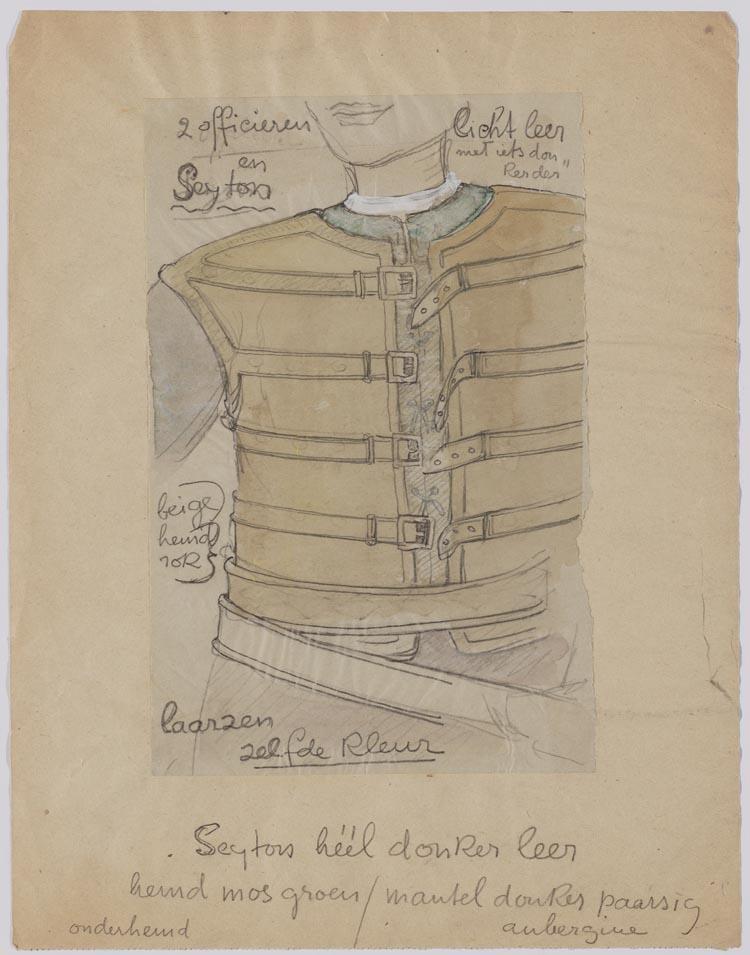 2 officieren
en
Seyton
licht leer
met iets don"
Kerder
beige
hemd
rok
laarzen
zelfde Kleur
Seyton héél donker leer
hemd mos groen / mantel donker paarsig
onderhemd
aubergine